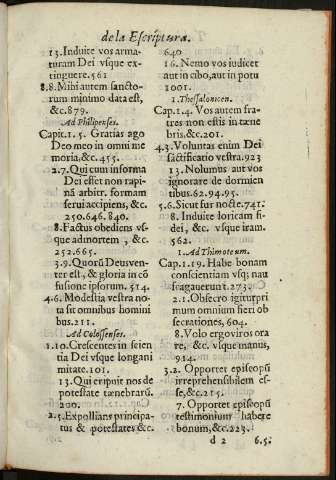 de la Escriptura.
13. Induite vos arma-
turam Dei vsque ex-
tinguere. 561
8.8. Mihi autem sancto-
rum minimo data est,
&c. 879.
Ad Philipenses.
Capit. 1.5. Gratias ago
Deo meo in omni me
moria, &c. 455.
2.7. Qui cum in forma
Dei esset non rapi-
nā arbitr. formam
serui accipiens, &c.
250. 646. 840.
8. Factus obediens vs-
que ad mortem, &c.
252. 665.
3.9. Quorū Deus ven-
ter est, & gloria in cō
fusione ipsorum. 514.
4.6. Modestia vestra no
ta sit omnibus homini
bus. 211.
Ad Colossenses.
1.10. Crescentes in scien
tia Dei vsque longani
mitate. 101.
13. Qui eripuit nos de
potestate tænebrarū.
200.
2.5. Expollians principa-
tus & potestates &c.
640
16. Nemo vos iudicet
aut in cibo, aut in potu
1001.
1. Thessalonicen.
Cap. 1.4. Vos autem fra-
tres non estis in tæne
bris, &c. 201.
4.3. Voluntas enim Dei
sactificatio vestra. 923
13. Nolumus aut vos
ignorare de dormien
ibus. 62. 94. 95.
5.6. Sicut fur nocte. 741.
8. Induite loricam fi-
dei, &c. vsque iram.
562.
1. Ad Thimoteum.
Cap. 1.19. Habe bonam
conscientiam vsq; nau
fragauerunt. 273.
2.1. Obsecro igitur pri
mum omnium fieri ob
secrationes, 604.
8. Volo ergo viros ora
re, &c. vsque manus,
914.
3.2. Oportet episcopū
irreprehensibilem es-
se, &c. 215.
7. Oportet episcopū
testimonium habere
bonum, &c. 223.
d 2 6.5.